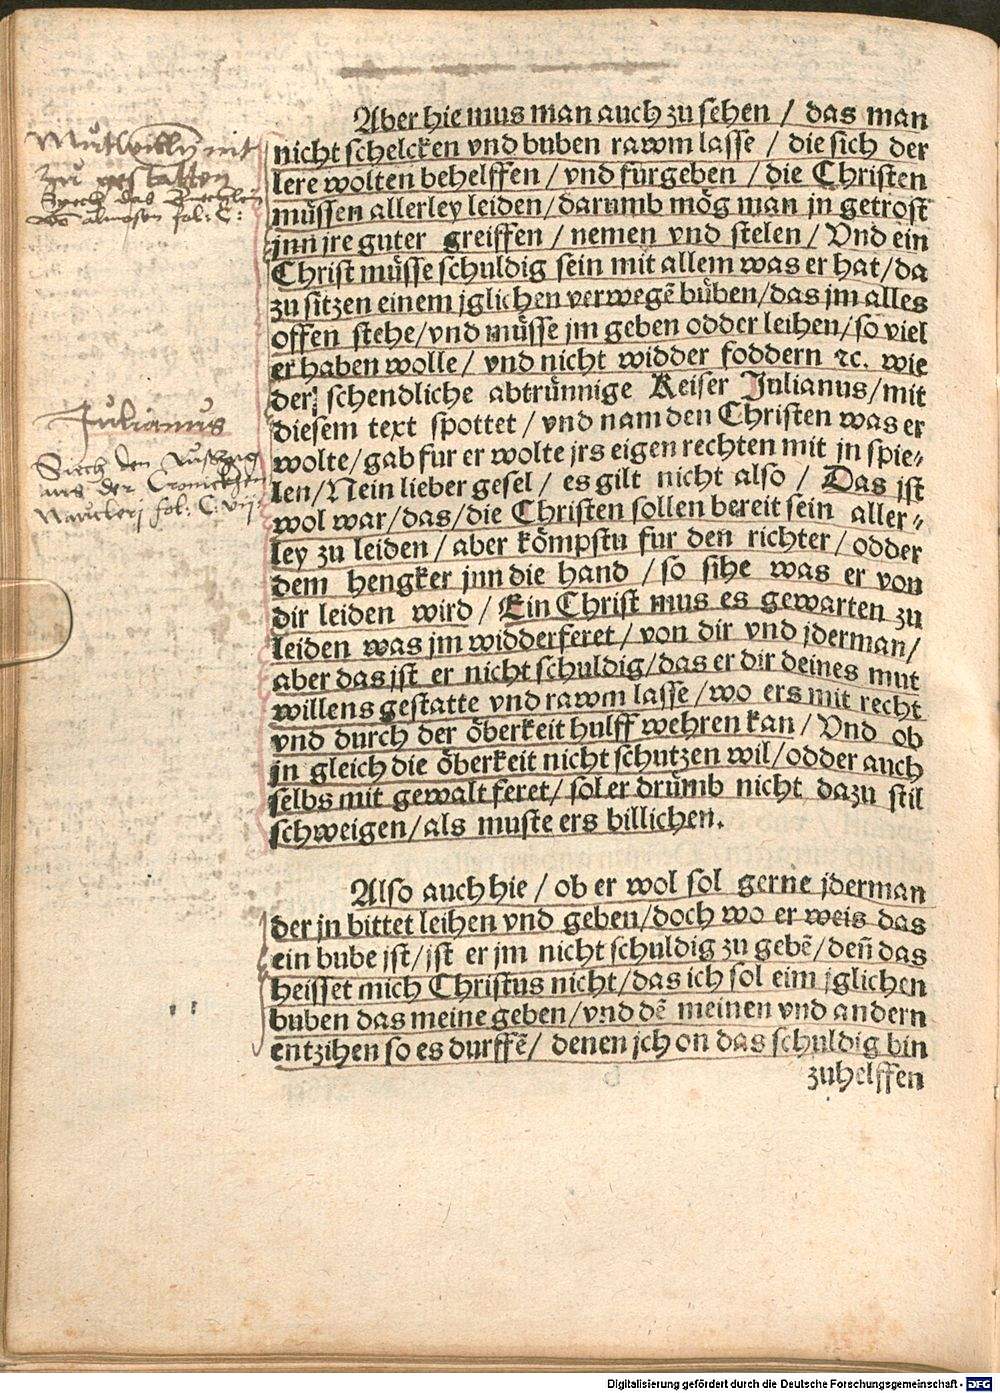 Aber hie mus man auch zu sehen / das man
nicht schelcken vnd buben rawm lasse / die sich der
lere wolten behelffen / vnd fürgeben / die Christen
müssen allerley leiden / darumb mög man jn getrost
jnn jre guter greiffen / nemen vnd stelen / Vnd ein
Christ müsse schuldig sein mit allem was er hat / da
zu sitzen einem jglichen verwegē büben / das jm alles
offen stehe / vnd müsse jm geben odder leihen / so viel
er haben wolle / vnd nicht widder foddern ⁊c. wie
der schendliche abtrünnige Keiser Julianus / mit
diesem text spottet / vnd nam den Christen was er
wolte / gab fur er wolte jrs eigen rechten mit jn spie⸗
len / Nein lieber gesel / es gilt nicht also / Das jst
wol war / das / die Christen sollen bereit sein aller⸗
ley zu leiden / aber kömpstu fur den richter / odder
dem hengker jnn die hand / so sihe was er von
dir leiden wird / Ein Christ mus es gewarten zu
leiden was jm widderferet / von dir vnd jderman /
aber das jst er nicht schuldig / das er dir deines mut
willens gestatte vnd rawm lasse / wo ers mit recht
vnd durch der öberkeit hulff wehren kan / Vnd ob
jn gleich die öberkeit nicht schutzen wil / odder auch
selbs mit gewalt feret / sol er drümb nicht dazu stil
schweigen / als muste ers billichen.
Also auch hie / ob er wol sol gerne jderman
der jn bittet leihen vnd geben / doch wo er weis das
ein bube jst / jst er jm nicht schuldig zu gebē / deñ das
heisset mich Christus nicht / das ich sol eim jglichen
buben das meine geben / vnd dē meinen vnd andern
entzihen so es durffē / denen jch on das schuldig bin
zuhelffen
Mutwilln nit
zu gestatten
fol: C:
Julianus
den
aus der Cronicken
Naucleri fol: C: vij
Digitalisierung gefördert durch die Deutsche Forschungsgemeinschaft - DFG